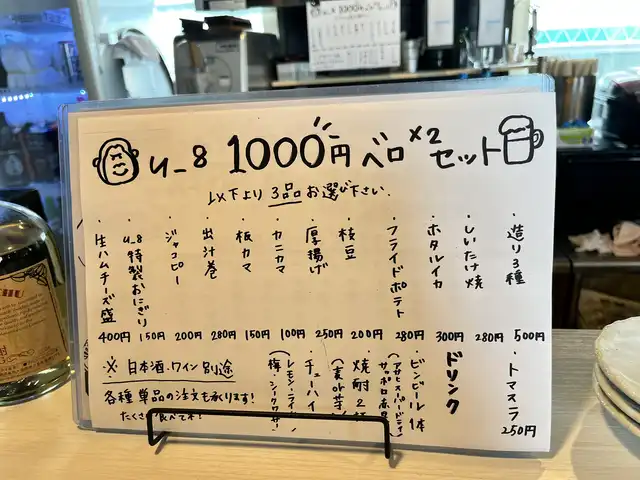 u_8 1000円 ベロ×2 セット
以下より 3品 お選び下さい。
・造り3種 500円
・しいたけ焼 280円
・ホタルイカ 300円
・フライドポテト 280円
・枝豆 200円
・厚揚げ 250円
・カニカマ 100円
・板カマ 150円
・出汁巻 280円
・ジャコピー 200円
・u_8特製おにぎり 150円
・生ハムチーズ盛 400円
・トマスラ 250円
ドリンク
・ビンビール1本
(アサヒスーパードライ
サッポロ赤星
・焼耐2
(麦or芋
・チューハイ
(レモン・ライ
梅・シークワサー
※ 日本酒・ワイン 別途
各種単品の注文も承ります!
たくさん食べてネ!